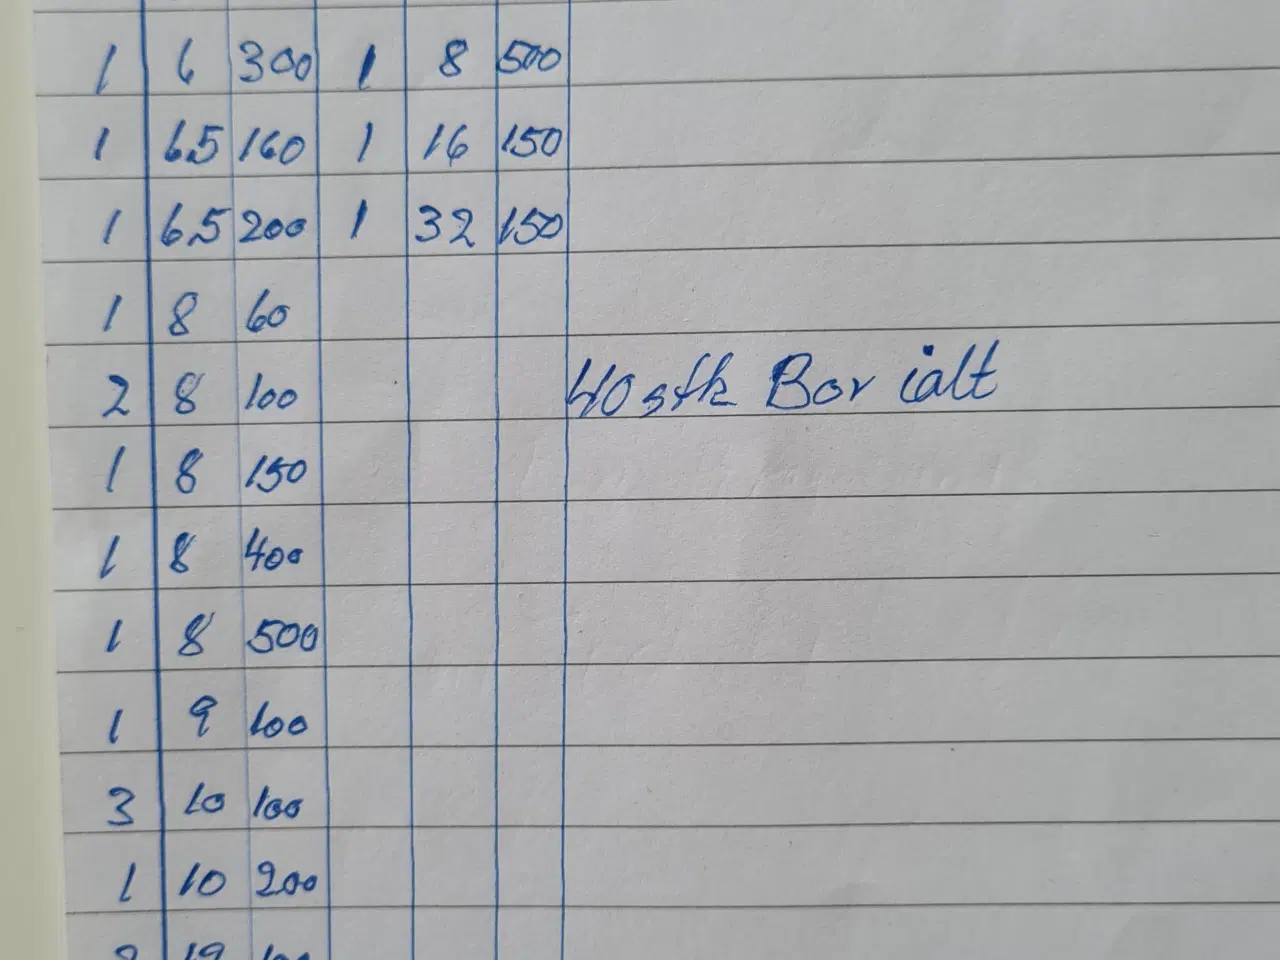 1 6 300 1 8 500
1 6.5 160 1 16 150
1 6.5 200 1 32 150
1 8 60
2 8 100 40 stk Bor ialt
1 8 150
1 8 400
1 8 500
1 9 100
3 10 100
1 10 200